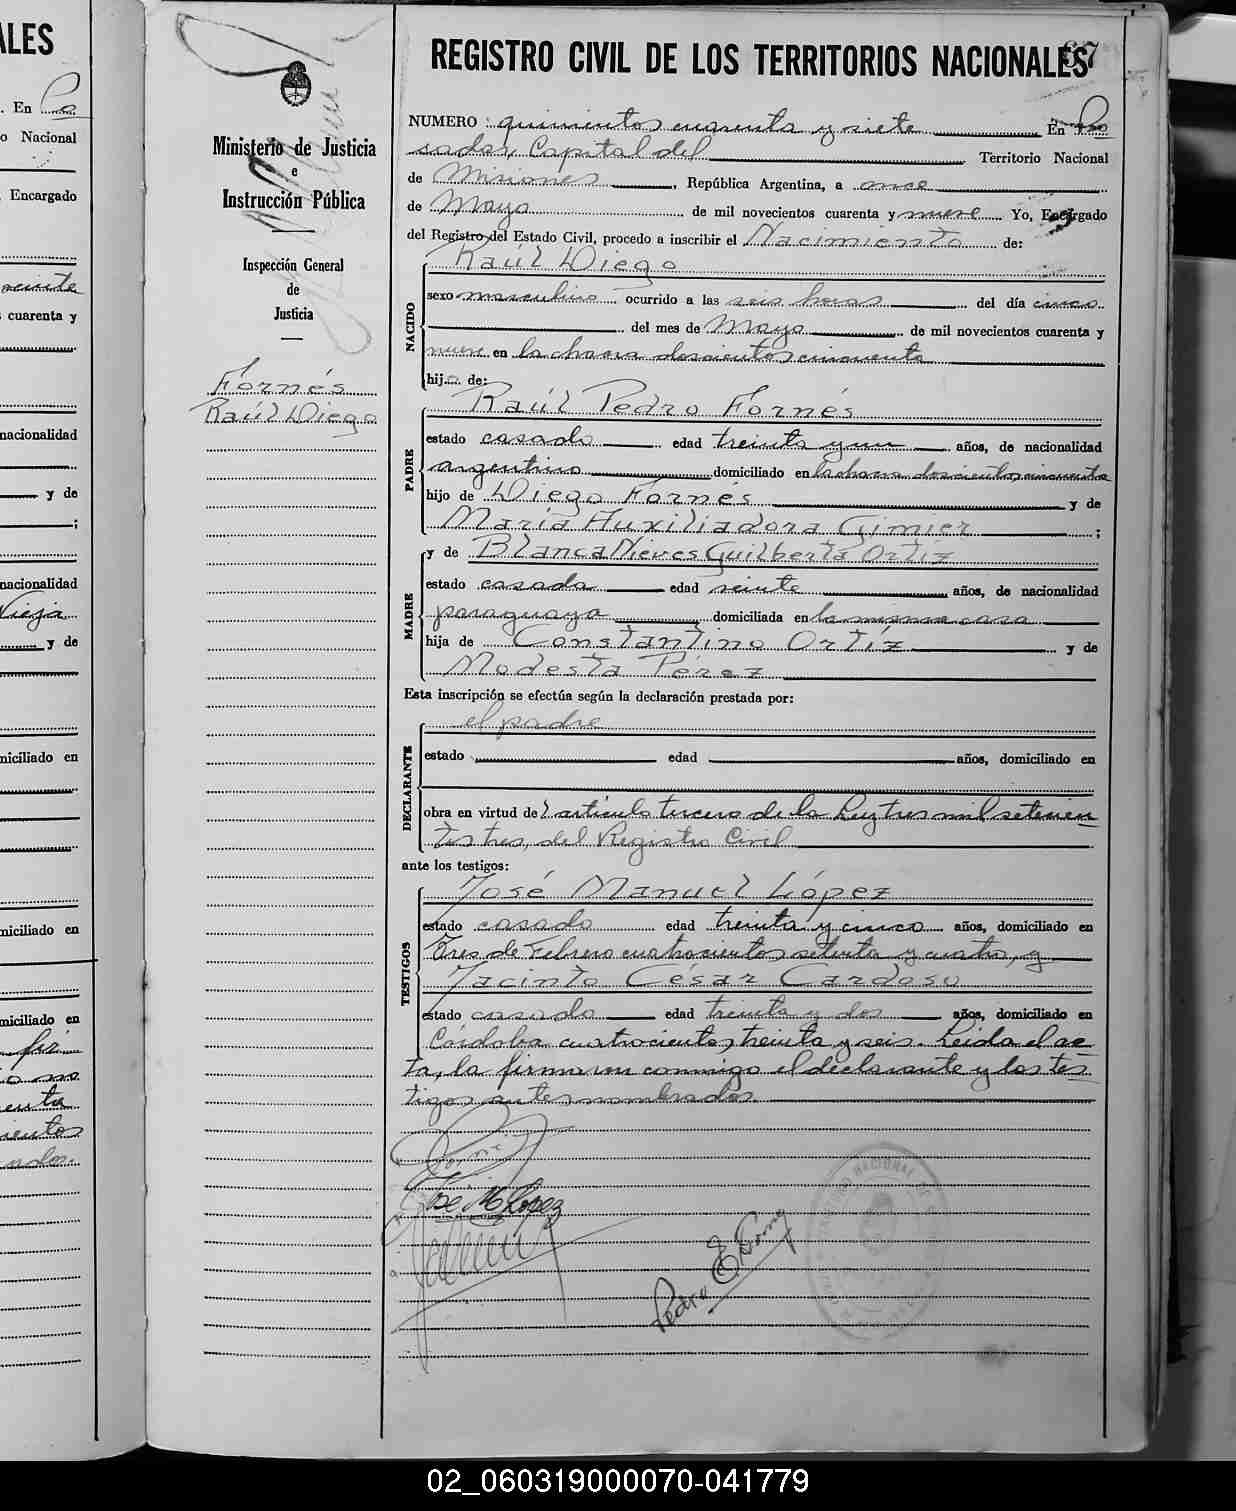 ALES
. En Po
o Nacional
Encargado
cuarenta y
nacionalidad
y de
nacionalidad
Vieja
y de
niciliado en
niciliado en
miciliado en
67
REGISTRO CIVIL DE LOS TERRITORIOS NACIONALES
Ministerio de Justicia
e
Instrucción Pública
Inspección General
de
Justicia
Fornés
Raúl Diego
NUMERO : quinientos cuarenta y siete En Po
sadas, Capital del Territorio Nacional
de Misiones, República Argentina, a once
de Mayo de mil novecientos cuarenta y nueve Yo, Encargado
del Registro del Estado Civil, procedo a inscribir el Nacimiento de:
Raúl Diego
NACIDO
sexo masculino ocurrido a las seis horas del día cinco
del mes de Mayo de mil novecientos cuarenta y
nueve en la chacra doscientos cincuenta
hijo de:
Raúl Pedro Fornés
PADRE
estado casado edad treinta y un años, de nacionalidad
argentino domiciliado en la chacra doscientos cincuenta
hijo de Diego Fornés y de
María Auxiliadora Gimier ;
y de Blanca Nieves Guilberta Ortíz
MADRE
estado casada edad veinte años, de nacionalidad
paraguaya domiciliada en la misma casa
hija de Constantino Ortíz y de
Modesta Pérez
Esta inscripción se efectúa según la declaración prestada por:
el padre
DECLARANTE
estado edad años, domiciliado en
obra en virtud del artículo tercero de la Ley tres mil setecien
tos tres, del Registro Civil
ante los testigos:
José Manuel López
TESTIGOS
estado casado edad treinta y cinco años, domiciliado en
Tres de Febrero cuatrocientos setenta y cuatro, y
Jacinto César Cardoso
estado casado edad treinta y dos años, domiciliado en
Córdoba cuatrocientos treinta y seis. Leída el ac
ta, la firmaron conmigo el declarante y los tes
tigos antes nombrados.
José M López
Pedro E
02_060319000070-041779